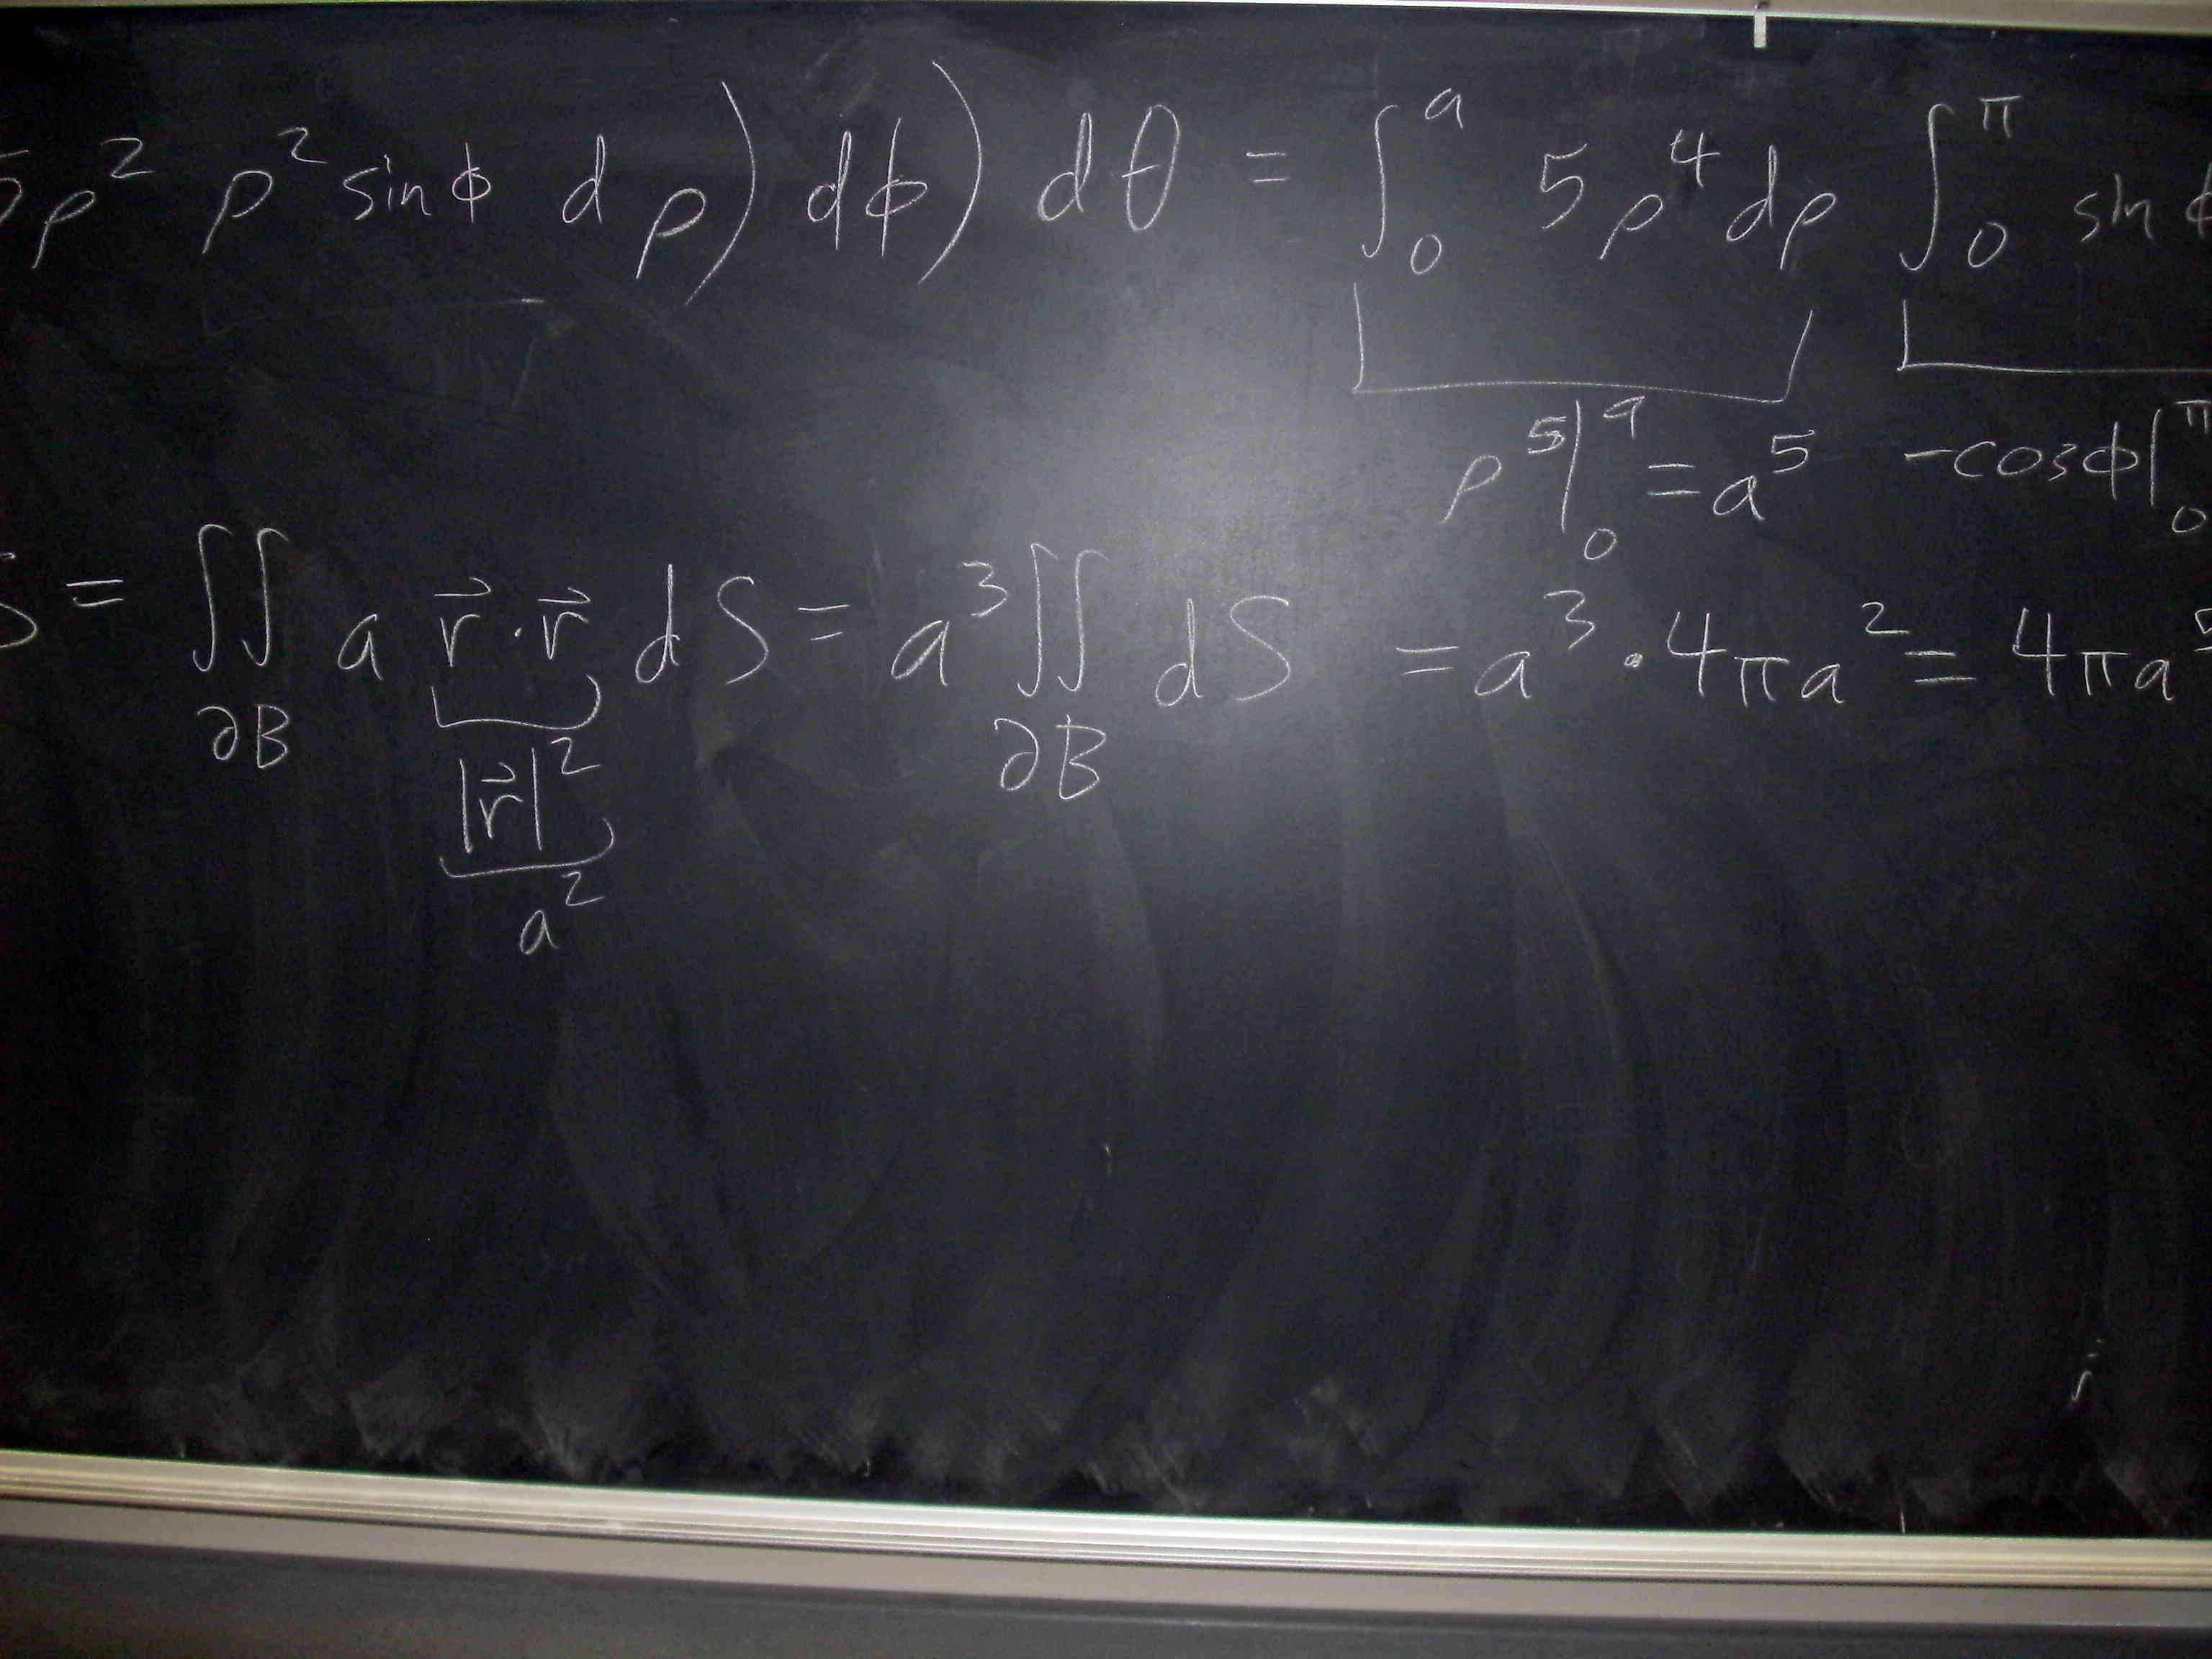 5ρ² ρ² sinϕ dρ) dϕ) dθ = ∫₀ᵃ 5ρ⁴ dρ ∫₀^π sin ϕ
ρ⁵|₀ᵃ = a⁵ -cosϕ|₀^π
S = ∬ a r⃗ · r⃗ dS = a³ ∬ dS = a³ · 4πa² = 4πa⁵
∂B ∂B
|r⃗|²
a²